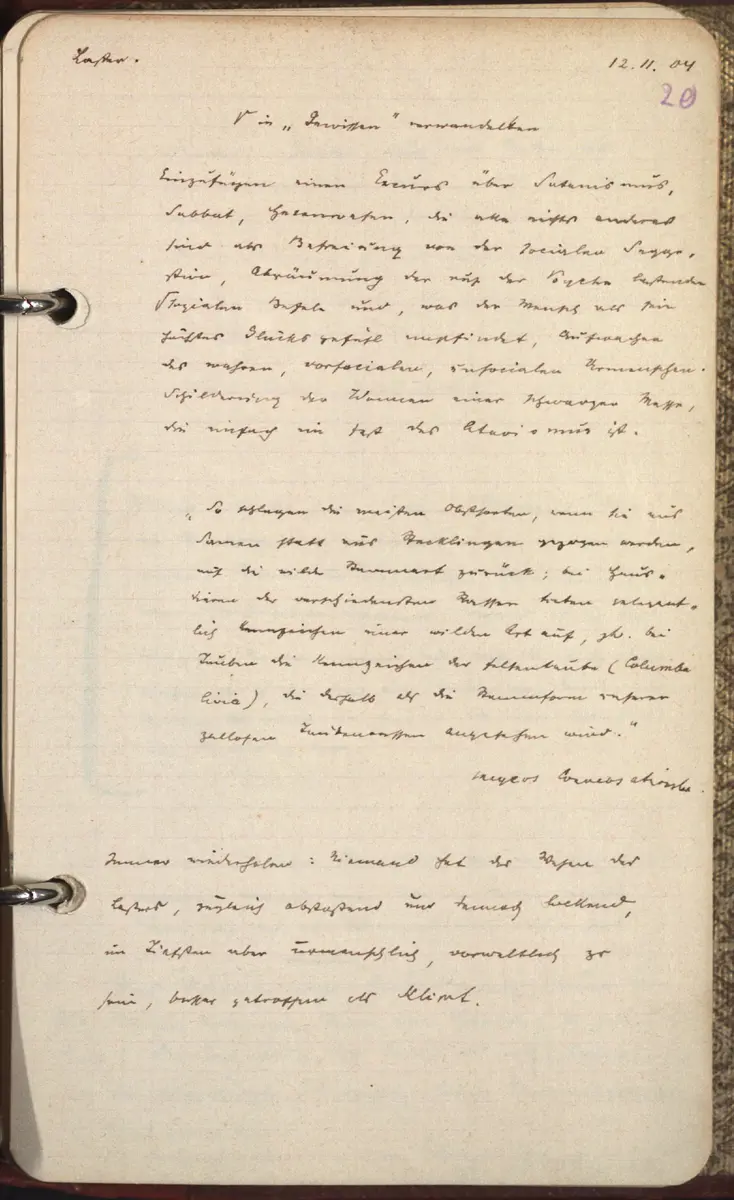 Laster.
12.11.04
20
V in „Gewissen" verwandelten
Einzufügen einen Excurs über Satanismus,
Sabbat, Hexenwesen, die alle nichts anderes
sind als Befreiung von der socialen Sugge-
stion, Abräumung der auf der Psyche lastenden
V sozialen Befele und, was der Mensch als sein
höchstes Glücksgefühl empfindet, Aufwachen
des wahren, vorsocialen, unsocialen Urmenschen.
Schilderung der Wonnen einer schwarzen Messe,
die einfach ein Fest des Atavismus ist.
„So schlagen die meisten Obstsorten, wenn sie aus
Samen statt aus Stecklingen gezogen werden,
auf die wilde Stammart zurück; bei Haus-
tieren der verschiedensten Rassen treten gelegent-
lich Kennzeichen einer wilden Art auf, zb. bei
Tauben die Kennzeichen der Felsentaube (Columba
livia), die deshalb als die Stammform unserer
zallosen Taubenrassen angesehen wird."
Meyers Conversationslex.
Immer wiederholen: Niemand hat das Wesen des
Lasters, zugleich abstoßend und dennoch lockend,
im Tiefsten aber urmenschlich, vorweltlich zu
sein, besser getroffen als Klimt.